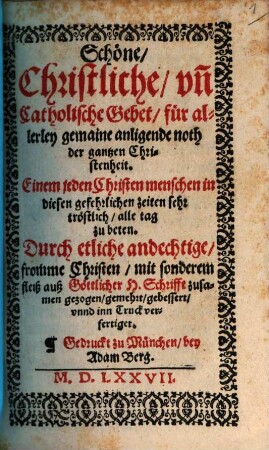 Schöne/
Christliche/ vñ
Catholische Gebet/ für al-
lerley gemaine anligende noth
der gantzen Chri-
stenheit.
Einem jeden Christen menschen in
diesen gefehrlichen zeiten sehr
tröstlich/ alle tag
zu beten.
Durch etliche andechtige/
fromme Christen/ mit sonderem
fleiß auß Göttlicher H. Schrifft zusa-
men gezogen/ gemehrt/ gebessert/
vnnd inn Truck ver-
fertiget.
¶ Gedruckt zu München/ bey
Adam Berg.
M. D. LXXVII.